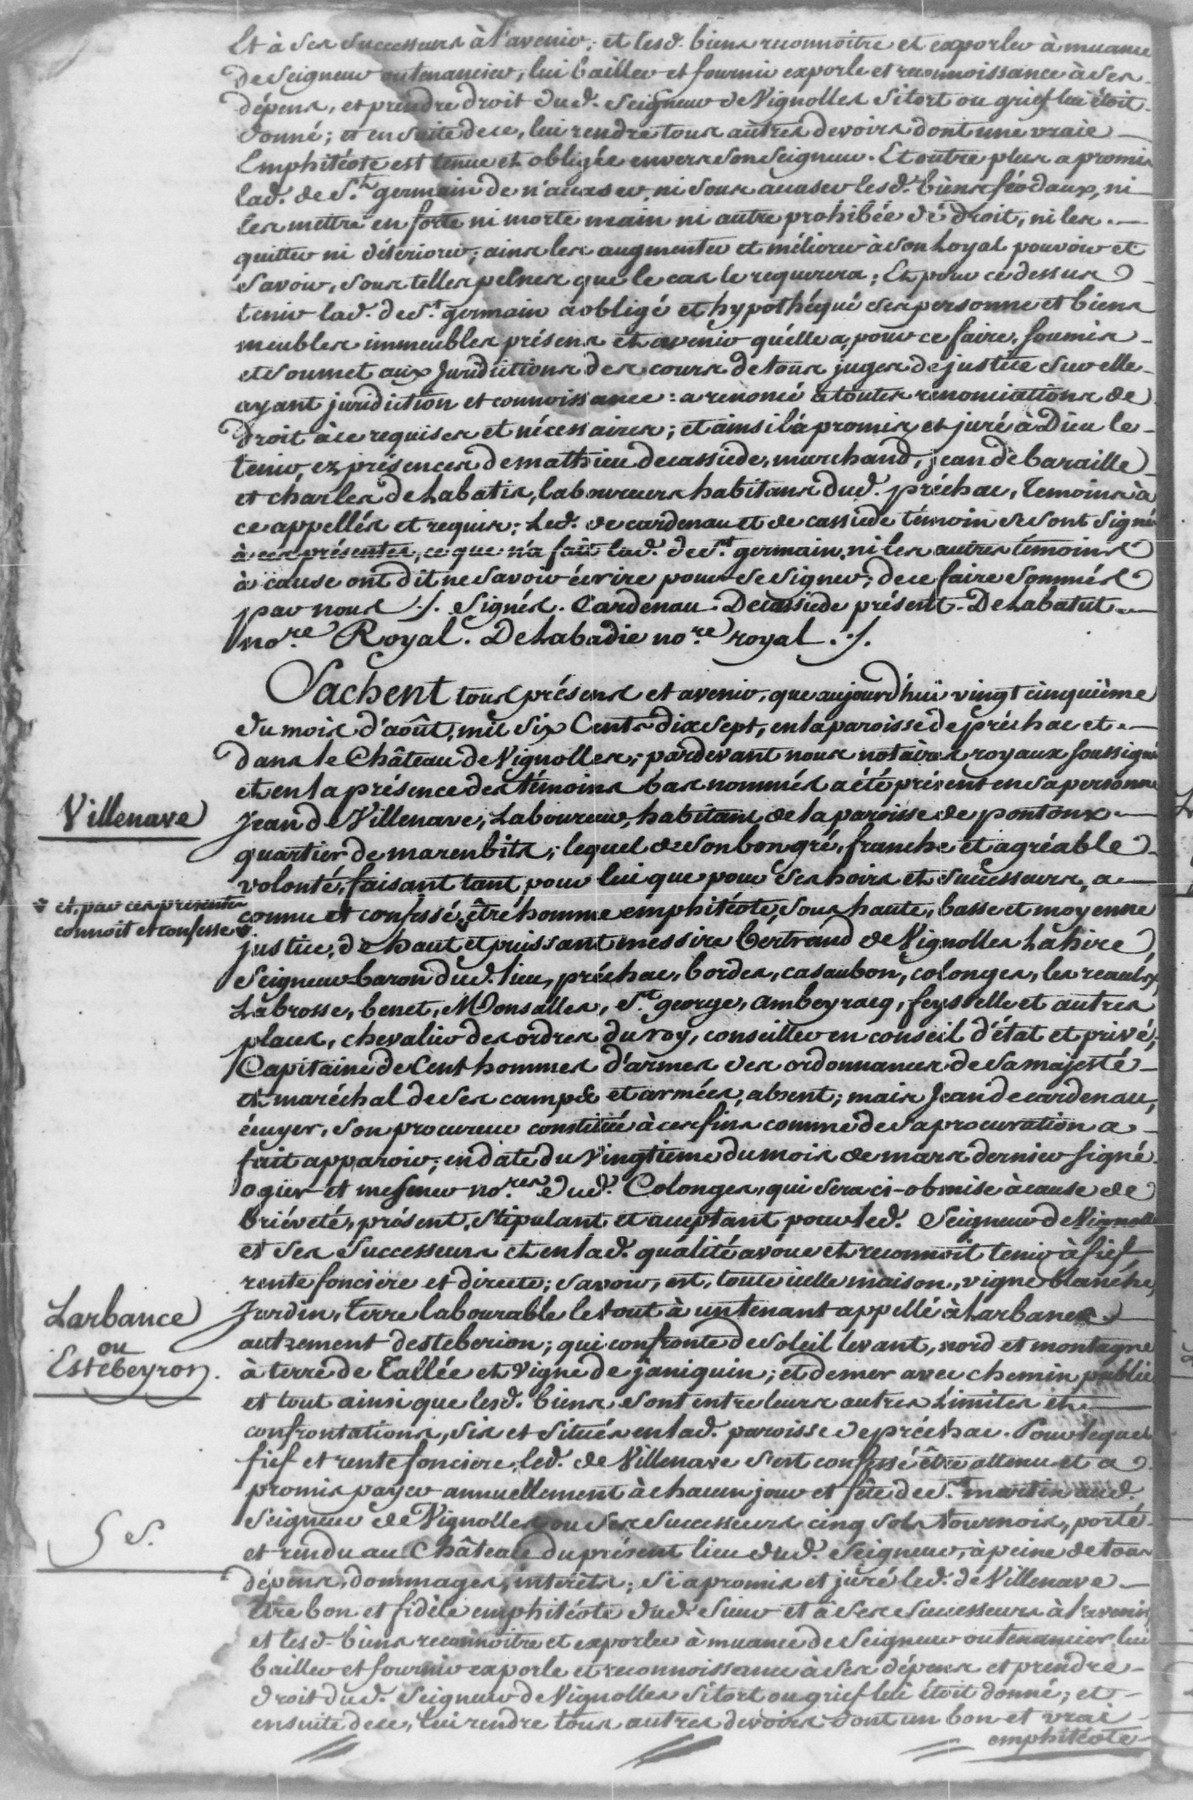 Et à ses successeurs à l'avenir; et lesd. biens reconnoitre et exporler à muance
de Seigneur ou tenancier, lui bailler et fournir exporle et reconnoissance à ses
dépens, et prendre droit dud. Seigneur de Vignolles si tort ou grief lui étoit
donné; et en suite de ce, lui rendre tous autres devoirs dont une vraie
Emphitéote est tenue et obligée envers son Seigneur. Et outre plus a promis
lad. de St. germain de n'accaser, ni sous accaser lesd. biens féodaux, ni
les mettre en forte ni morte main ni autre prohibée de droit, ni les
quitter ni détériorer; ains les augmenter et méliorer à son Loyal pouvoir et
savoir, sous telles peines que le cas le requerera; Et pour ce dessus
tenir lad. de St. germain a obligé et hypothéqué ses personne et biens
meubles immeubles présens et avenir qu'elle a, pour ce faire, soumis
et soumet aux Juridictions des cours de tous juges de justice sur elle
ayant juridiction et connoissance: a renoncé à toutes renonciations de
Droit à ce requises et nécessaires; et ainsi l'a promis et juré à Dieu le
tenir, ez présences de mathieu decassiede, marchand, jean de baraille
et charles de Labatis, laboureurs habitans dud. préchac, Temoins à
ce appellés et requis; Led. de cardenau et de cassiede témoin se sont signé
à ces présentes, ce que n'a fait lad. de St. germain, ni les autres témoins
à cause ont dit ne savoir écrire pour se signer; de ce faire sommés
par nous ./. Signés. Cardenau. Decassiede présent. De Labatut
no.re Royal. De Labadie no.re royal ./.
Sachent tous présens et avenir, que aujourd'hui vingt cinquième
du mois d'août, mil six Cents dix sept, en la paroisse de préchac et
dans le Château de Vignolles; pardevant nous notaires royaux soussignés
et en la présence des témoins bas nommés a été présent en sa personne
Villenave
Jean de Villenave, Laboureur, habitant de la paroisse de pontonx
quartier de marenbits; lequel de son bon gré, franche et agréable
volonté, faisant tant pour lui que pour ses hoirs et successeurs, a
et, par ces presentes
connoit et confesse
connu et confessé être homme emphitéote, sous haute, basse et moyenne
justice, de haut et puissant messire Bertrand de Vignolles Lahire
Seigneur baron dud. lieu, préchac, bordes, casaubon, colonges, les reaulx,
Labrosse, benet, Monsalles, St. george, ambeyracq, feystelle et autres
places, chevalier des ordres du roy, conseiller en conseil d'état et privé;
Capitaine de Cent hommes d'armes des ordonnances de sa majesté
et maréchal de ses camps et armées, absent; mais Jean de cardenau,
écuyer, son procureur constitué à ces fins comme de sa procuration a
fait apparoir; en date du vingtieme du mois de mars dernier signé
ogier et mesmer no.res dud. Colonges, qui sera ci-obmise à cause de
briéveté, présent, stipulant et acceptant pour led. Seigneur de Vignolles
et ses Successeurs et en lad. qualité avoue et reconnoit tenir à fief,
rente foncière et directe; savoir, est, toute icelle maison, vigne blanche,
Larbance
ou
Estebeyron.
Jardin, Terre labourable le tout à un tenant appellé à Larbance
autrement destebeiron; qui confronte de soleil levant, nord et montagne
à terre de Tallée et vigne de janiquin; et de mer avec chemin public
et tout ainsi que lesd. biens sont entre leurs autres Limites et
confrontations, sis et situés en lad. paroisse de préchac. Pour lequel
fief et rente foncière led. de Villenave s'est confessé être attenu et a
promis payer annuellement à chacun jour et fête de St. martin aud.
5 s.
Seigneur de Vignolles ou ses successeurs cinq sols tournois, porté
et rendu au Château du présent lieu dud. Seigneur, à peine de tous
dépens, dommages, intérêts; si a promis et juré led. de Villenave
être bon et fidèle emphitéote dud. Sieur et à ses successeurs à l'avenir,
et lesd. biens reconnoitre et exporler à muance de Seigneur ou tenancier, lui
bailler et fournir exporle et reconnoissance à ses dépens et prendre
droit dud. Seigneur de Vignolles si tort ou grief lui étoit donné; et
ensuite de ce, lui rendre tous autres devoirs dont un bon et vrai
emphitéote